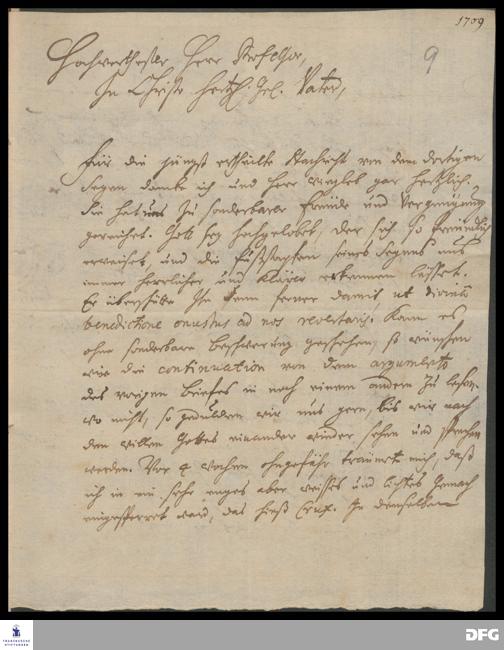 1709
9
Hochwerthester Herr Professor,
In Christo hertzl. gel. Vater,
Für die jüngst ertheilte Nachricht von dem dortigen
Segen dancke ich und Herr Wiegleb gar hertzlich.
Sie hat uns zu sonderbarer Freude und Vergnügung
gereichet. Gott sey hochgelobet, der sich so freundlich
erweiset, und die Fußstapfen seines Segens uns
immer herrlicher und klärer erkennen lässet.
Er überschütte Ihn ferner damit, ut divina
benedictione onustus ad nos revertaris. Kann es
ohne sonderbare Beschwerung geschehen, so wünschen
wir die continuation von dem argumento
des vorigen Briefes in noch einem andern zu lesen.
wo nicht, so gedulden wir uns gern, bis wir nach
dem willen Gottes einander wieder sehen und sprechen
werden. Vor 4 wochen ohngefähr träumte mich, daß
ich in ein sehr enges aber weisses und lichtes Gemach
eingesperret ward, das hieß Crux. In demselben
FRANCKESCHE STIFTUNGEN
DFG